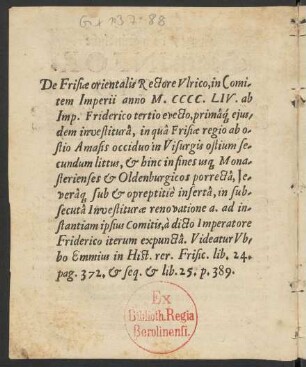 De Frisiæ orientalis Rectore Vlrico, in Comi-
tem Imperii anno M. CCCC. LIV. ab
Imp. Friderico tertio evecto, primâq́; ejus-
dem investiturâ, in quâ Frisiæ regio ab o-
stio Amasis occiduo in Visurgis ostium se-
cundum littus, & hinc in fines usq́; Mona-
sterienses & Oldenburgicos porrectâ, se-
verâq́; sub & opreptitiè insertâ, in sub-
secutâ Investituræ renovatione a. ad in-
stantiam ipsius Comitis, à dicto Imperatore
Friderico iterum expunctâ. Videatur Vb-
bo Emmius in Hist. rer. Frisic. lib. 24.
pag. 372. & seq. & lib. 25. p. 389.
Ex
Biblioth. Regia
Berolinensi.